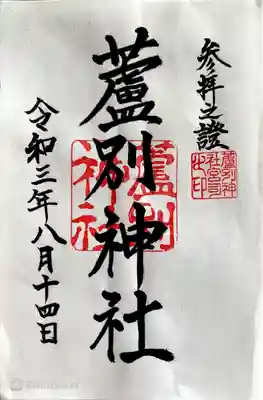 参拝之證
蘆別神社宮司之印
蘆別神社
蘆別神社
令和三年八月十四日